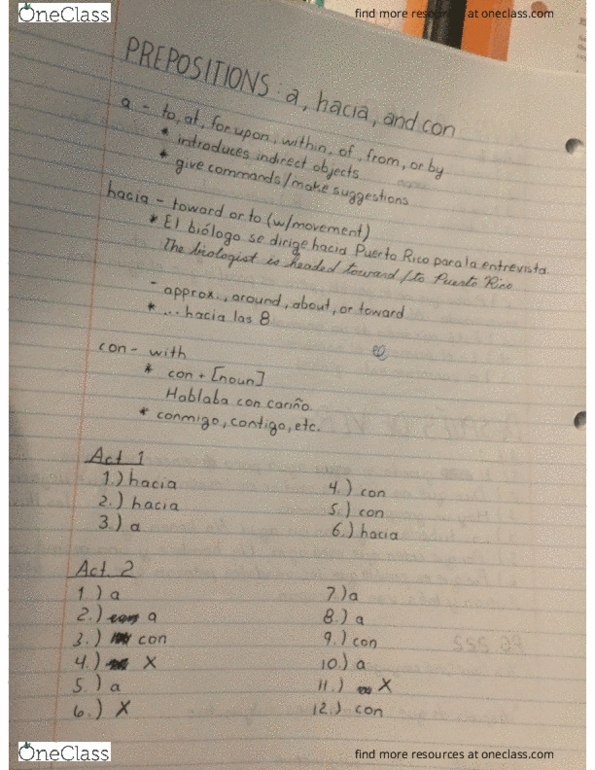 OneClass
find more resources at oneclass.com
PREPOSITIONS: a, hacia, and con
a - to, at, for upon, within, of, from, or by
* introduces indirect objects
* give commands/make suggestions
hacia - toward or to (w/movement)
* El biólogo se dirige hacia Puerto Rico para la entrevista.
The biologist is headed toward/to Puerto Rico
- approx., around, about, or toward
* ... hacia las 8
con - with
* con + [noun]
Hablaba con cariño.
* conmigo, contigo, etc.
Act 1
1.) hacia 4.) con
2.) hacia 5.) con
3.) a 6.) hacia
Act. 2
1.) a 7.) a
2.) a 8.) a
3.) con 9.) con
4.) X 10.) a
5.) a 11.) X
6.) X 12.) con
OneClass
find more resources at oneclass.com